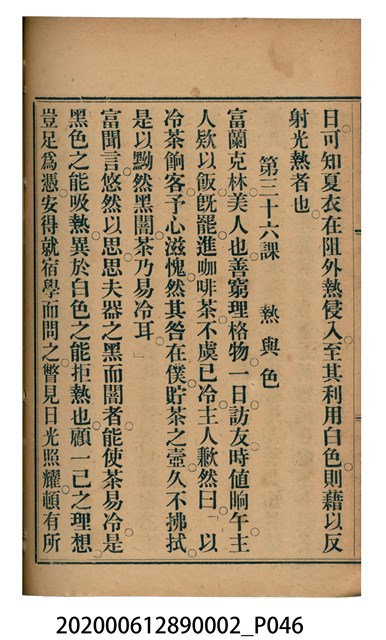 日可知夏衣在阻外熱侵入至其利用白色則藉以反
射光熱者也
第三十六課　熱與色
富蘭克林美人也善窮理格物一日訪友時値晌午主
人欵以飯旣罷進咖啡茶不虞已冷主人歉然曰「以
冷茶餉客予心滋愧然其咎在僕貯茶之壺久不拂拭
是以黝然黑闇茶乃易冷耳」
富聞言悠然以思思夫器之黑而闇者能使茶易冷是
黑色之能吸熱異於白色之能拒熱也顧一己之理想
豈足爲憑安得就宿學而問之瞥見日光照耀頓有所
202000612890002_P046